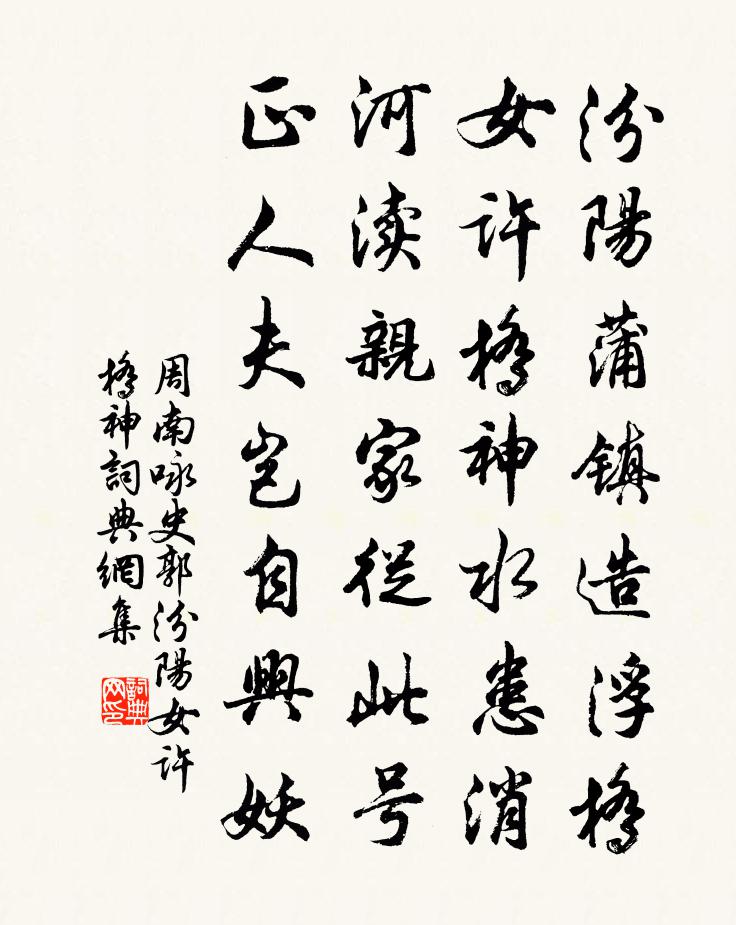 汾陽蒲镇造浮橋
女许橋神水患消
河渎親家從此号
正人夫岂自興妖
周南咏史郭汾陽女许
橋神詞典網集
詞典网印